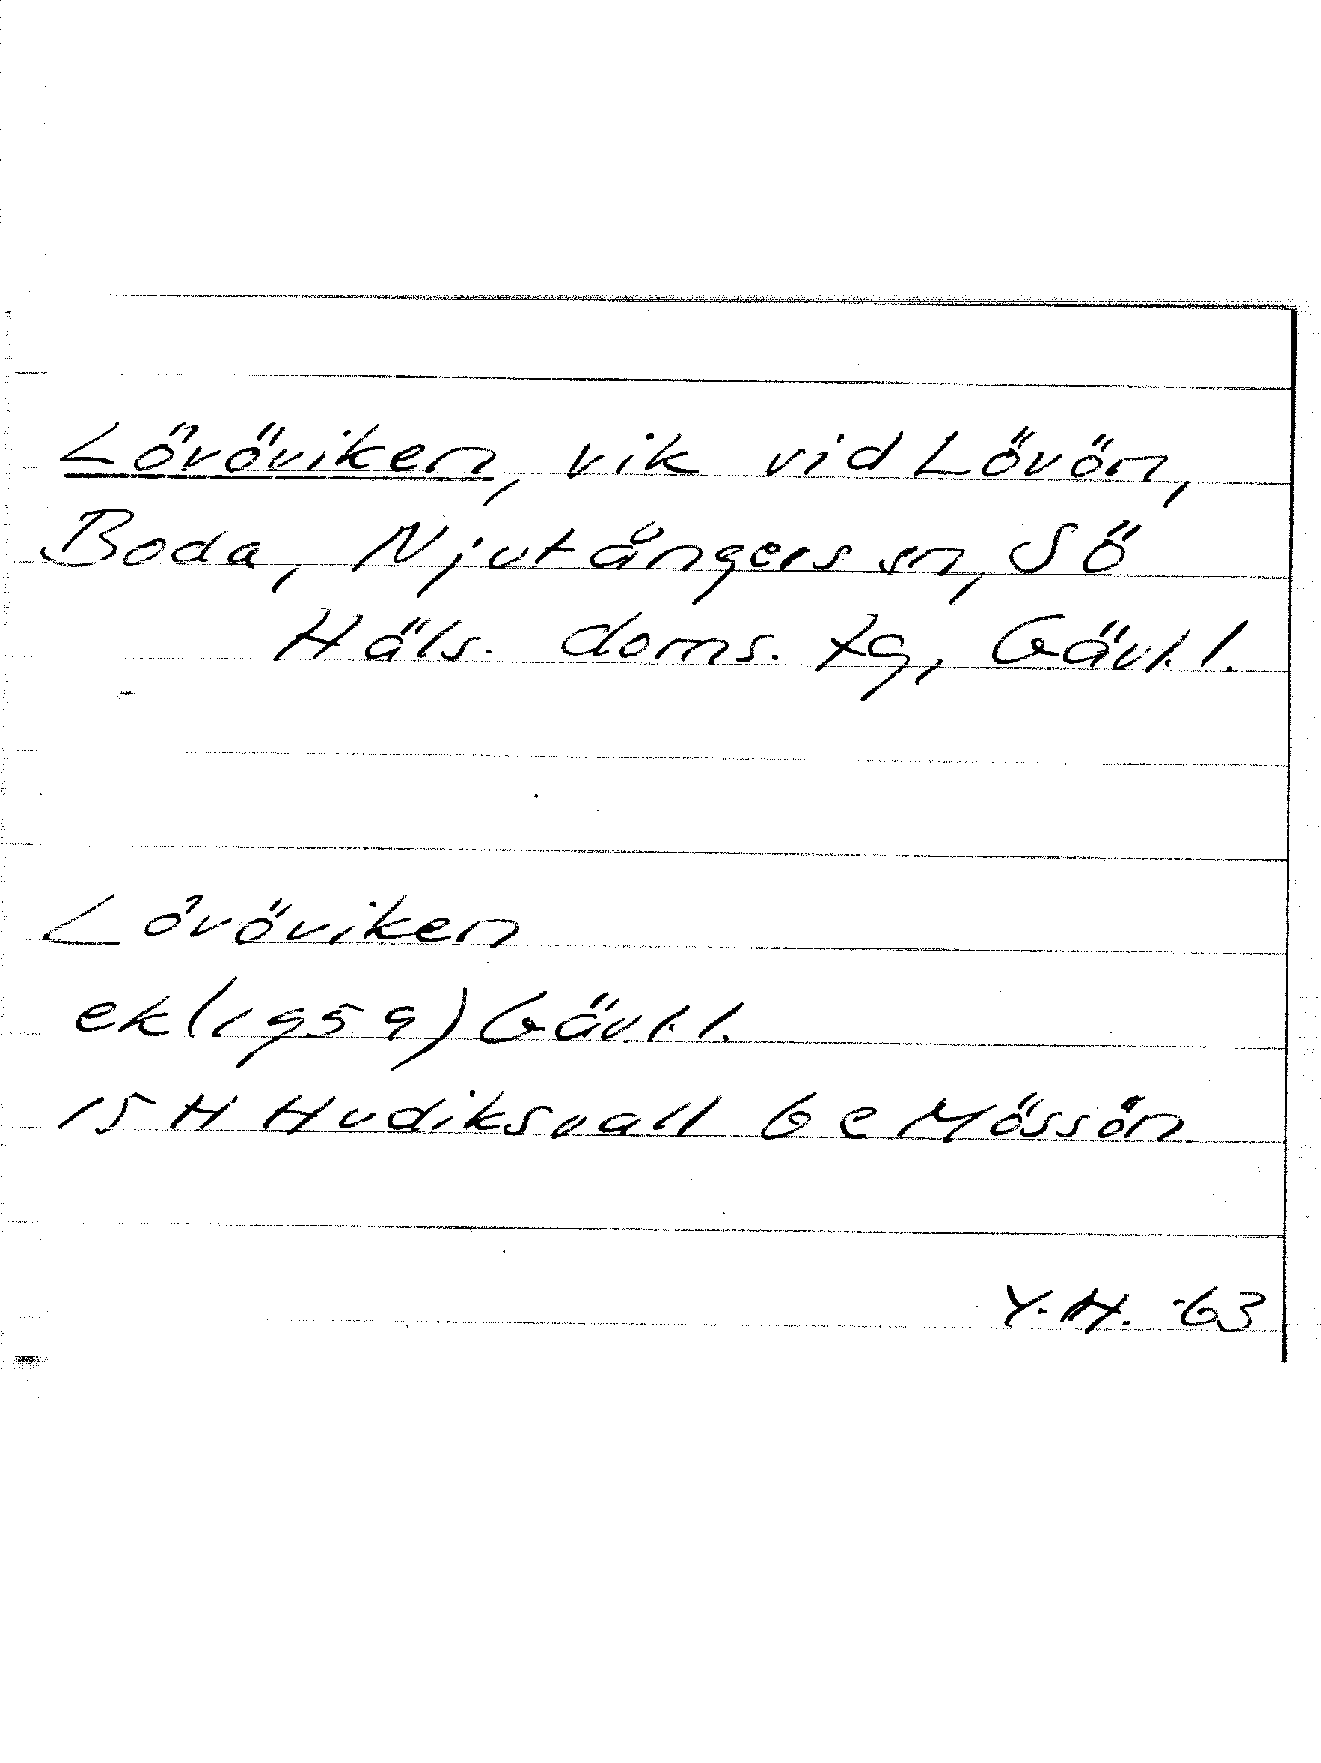 Lövöviken, vik vid Lövön,
Boda, Njutångers sn, Sö
Häls. doms. tg, Gävl. l.
Lövöviken
ek (1959) Gävl. l.
15 H Hudiksvall 6 e Mössön
Y. H. -63